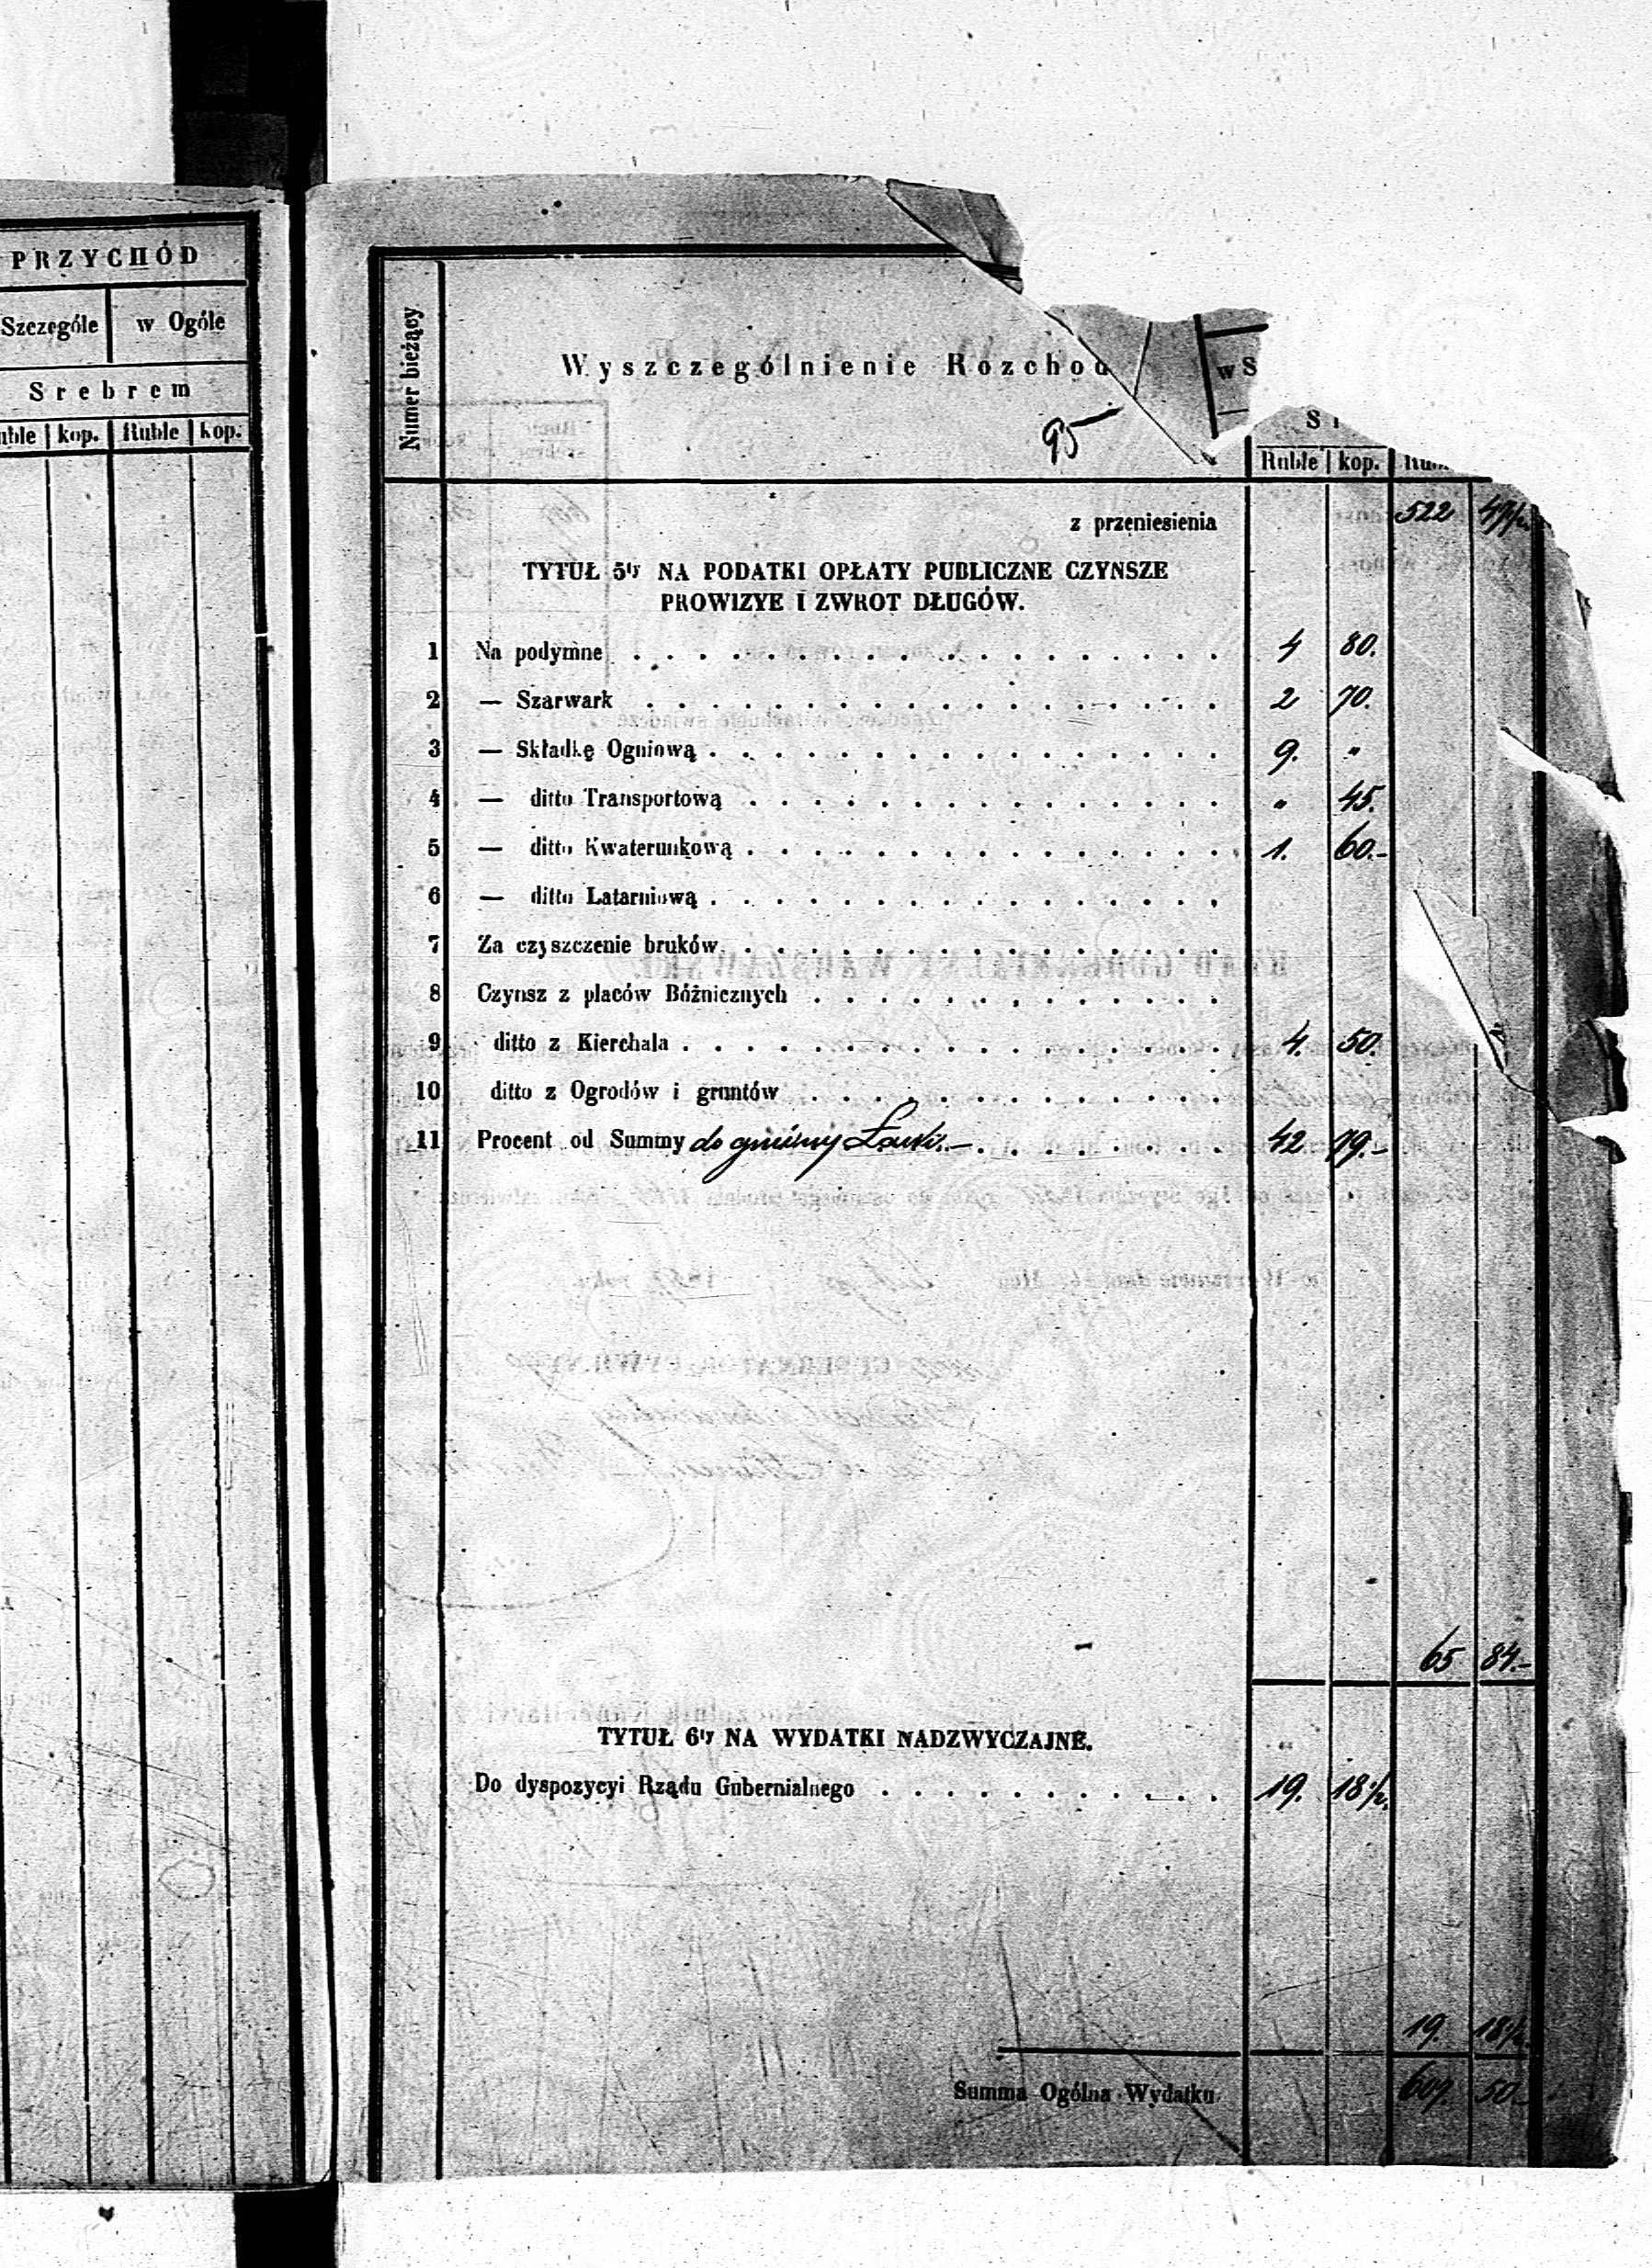 PRZYCHÓD
Szczególe w Ogóle
Srebrem
kop. Ruble kop.
Numer bieżący
Wyszczególnienie Rozchod
w S
95
S
Ruble kop.
z przeniesienia 522 47½
TYTUŁ 5ty NA PODATKI OPŁATY PUBLICZNE CZYNSZE
PROWIZYE I ZWROT DŁUGÓW.
1 Na podymne . . . . . . 4 80.
2 — Szarwark . . . . . . 2 70.
3 — Składkę Ogniową . . . . . . 9. "
4 — ditto Transportową . . . . . . " 45.
5 — ditto Kwaterunkową . . . . . . 1. 60.-
6 — ditto Latarniową . . . . . .
7 Za czyszczenie bruków . . . . . .
8 Czynsz z placów Bóżnicznych . . . . . .
9 ditto z Kierchala . . . . . . 4. 50.
10 ditto z Ogrodów i gruntów . . . . . .
11 Procent od Summy do gminy . . . . . . 42 79.-
65 84.-
TYTUŁ 6ty NA WYDATKI NADZWYCZAJNE.
Do dyspozycyi Rządu Gubernialnego . . . . . . 19. 18½.
19. 18½
Summa Ogólna Wydatku 607. 50.-